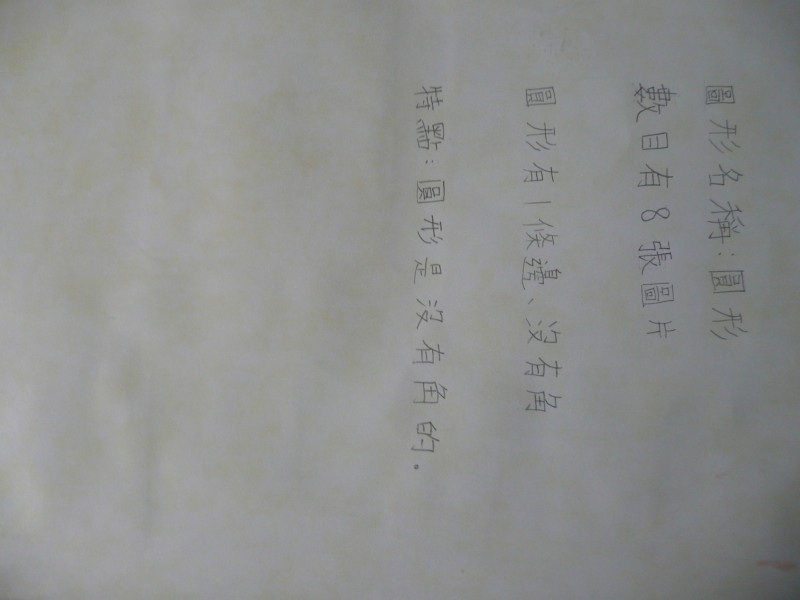 圖形名稱:圓形
數目有8張圖片
圓形有1條邊、沒有角
特點:圓形是沒有角的。